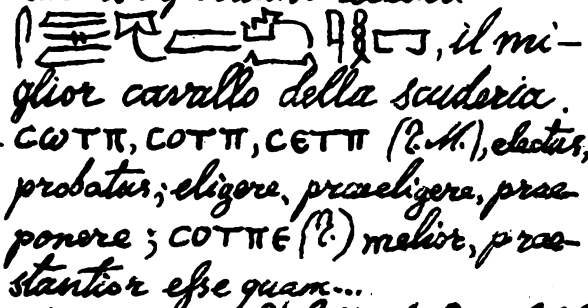 , il mi-
glior cavallo della scuderia.
ⲥⲱⲧⲡ, ⲥⲟⲧⲡ, ⲥⲉⲧⲡ (T. M.), electus,
probatus; eligere, praeeligere, prae-
ponere; ⲥⲟⲧⲡⲉ (T.) melior, prae-
stantior esse quam...